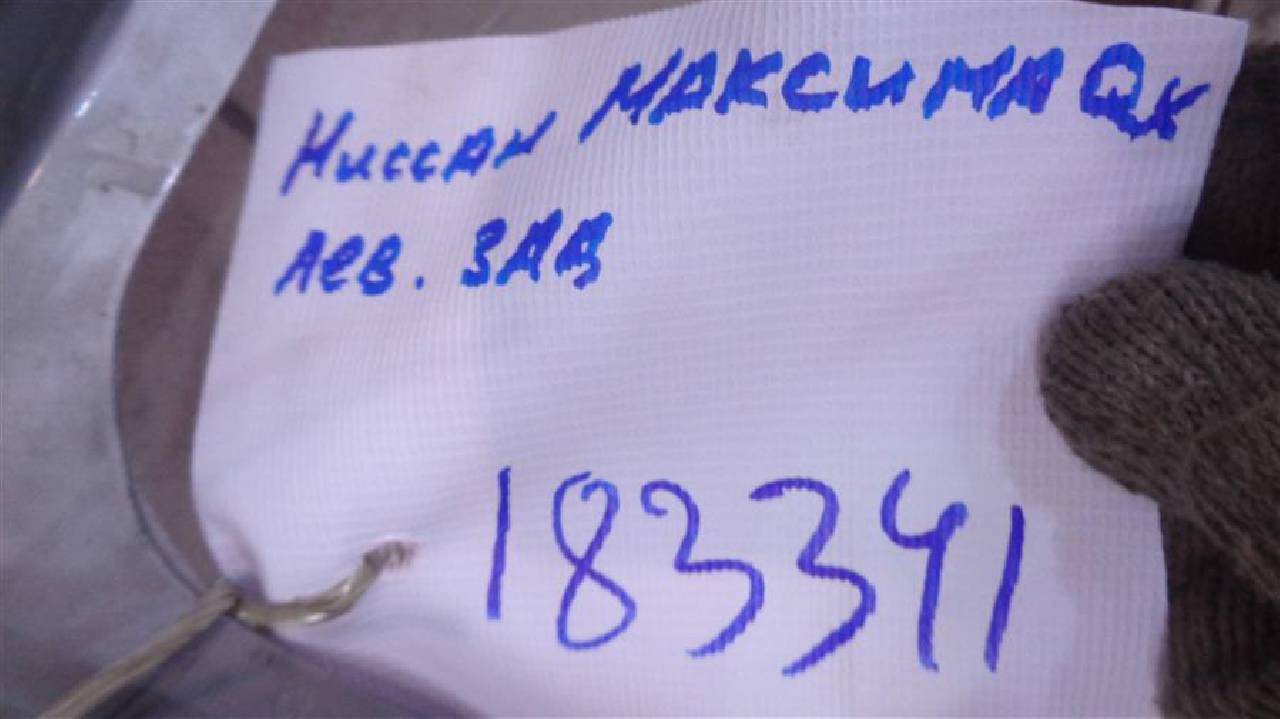 Ниссан МАКСИМА QX
лев. ЗАД
183341